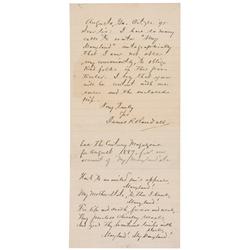 Augusta, Ga. Oct 21. 95
Dear Sir: I have so many
calls to write "My
Maryland" autographically
that I am not able,
my
to oblige
folks in this
I beg that you
will be content with me
and the enclosed
slip.
Very Truly
Yrs
James R. Randall
See the Century Magazine
for August 1887 for
account of My Maryland
Hark to an exiled son's appeal,
Maryland!
My Mother State, to thee I kneel,
Maryland!
For life and death, for woe and weal,
Thy peerless chivalry reveal,
And gird thy beauteous limbs with
steel,
Maryland! My Maryland!